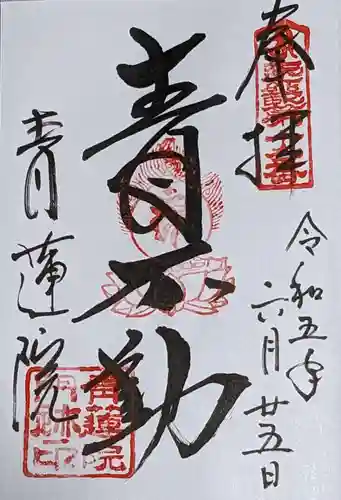 奉拝
令和五年
六月廿五日
青不動
青蓮院